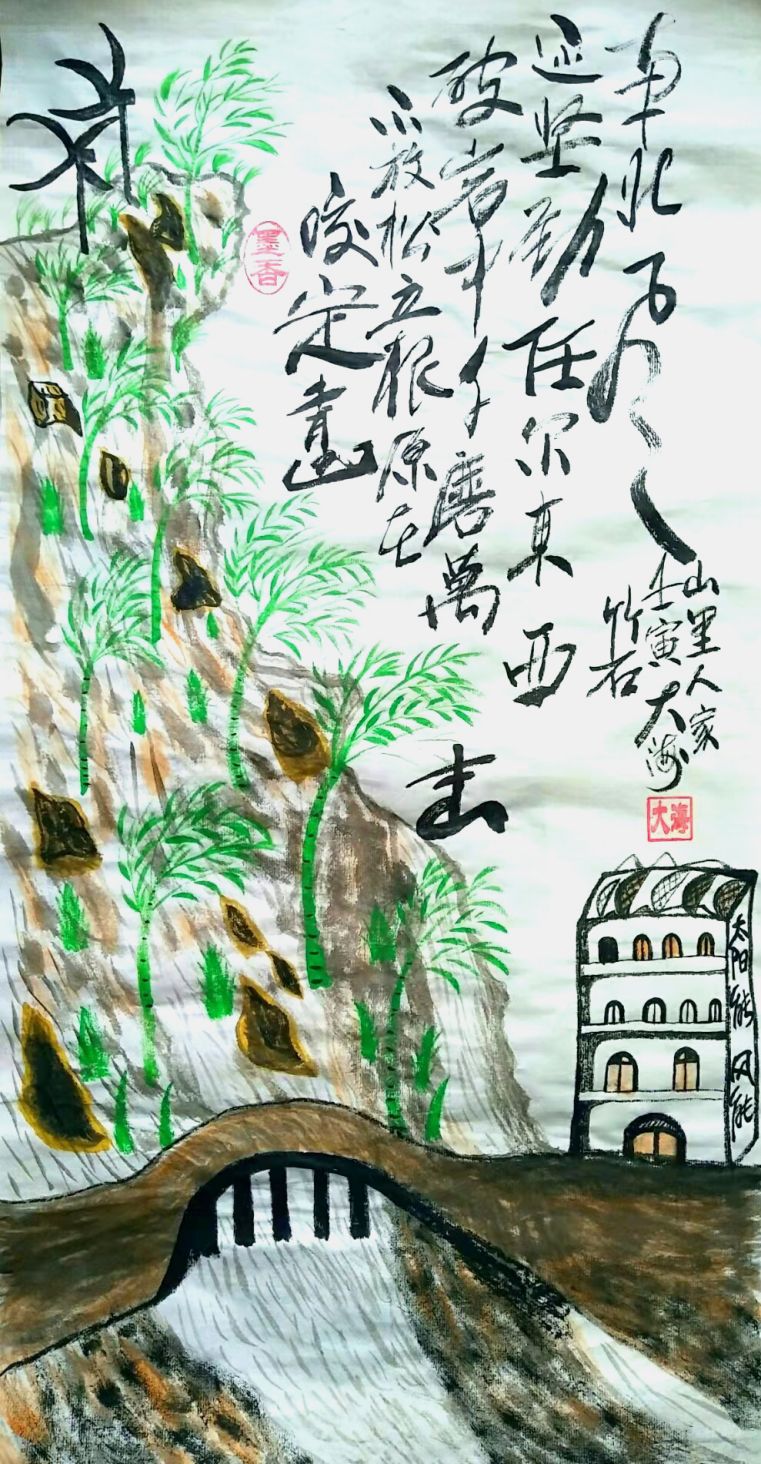 咬定青山
不放松立根原在
破岩中千磨萬击
还坚劲任尔东西
南北风
竹石
壬寅大海
山里人家
墨香
大海
太阳能风能